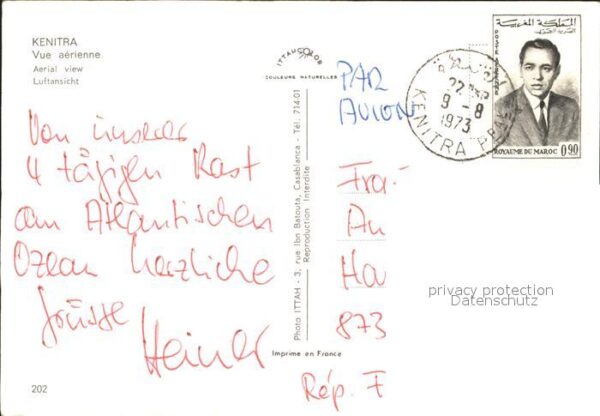 KENITRA
Vue aérienne
Aerial view
Luftansicht
ITTAH COLOR
COULEURS NATURELLES
PAR
AVION
KENITRA PPAL
22
9-8
1973
المملكة المغربية
ROYAUME DU MAROC 0,90
Von unserer
4 tägigen Rast
am Atlantischen
Ozean herzliche
Grüsse
Heiner
Photo ITTAH - 3, rue Ibn Batouta, Casablanca - Tél. 714-01
Reproduction Interdite
Fra.
An
Ha
873
Rép. F
privacy protection
Datenschutz
Imprime en France
202